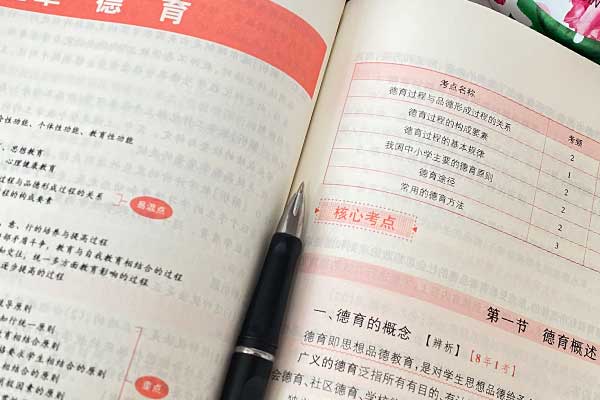 德 育
个体性功能、教育性功能
思想教育
心理健康教育
过程与品德形成过程的关系
程的构成要素
易混点
意、行的培养与提高过程
内部矛盾斗争，教育与自我教育相结合的过程
和交往，统一多方面教育影响的过程
逐步提高的过程
导原则
知行统一原则
教育相结合原则
格要求学生相结合的原则
相结合的原则
消极因素的原则
重点
考点名称
考频
德育过程与品德形成过程的关系
2
德育过程的构成要素
1
德育过程的基本规律
2
我国中小学主要的德育原则
2
德育途径
2
常用的德育方法
3
核心考点
第一节 德育概述
一、德育的概念 【辨析】【8年1考】
德育即思想品德教育，是对学生思想品德给予
广义的德育泛指所有有目的、有计
会德育、社区德育、学校